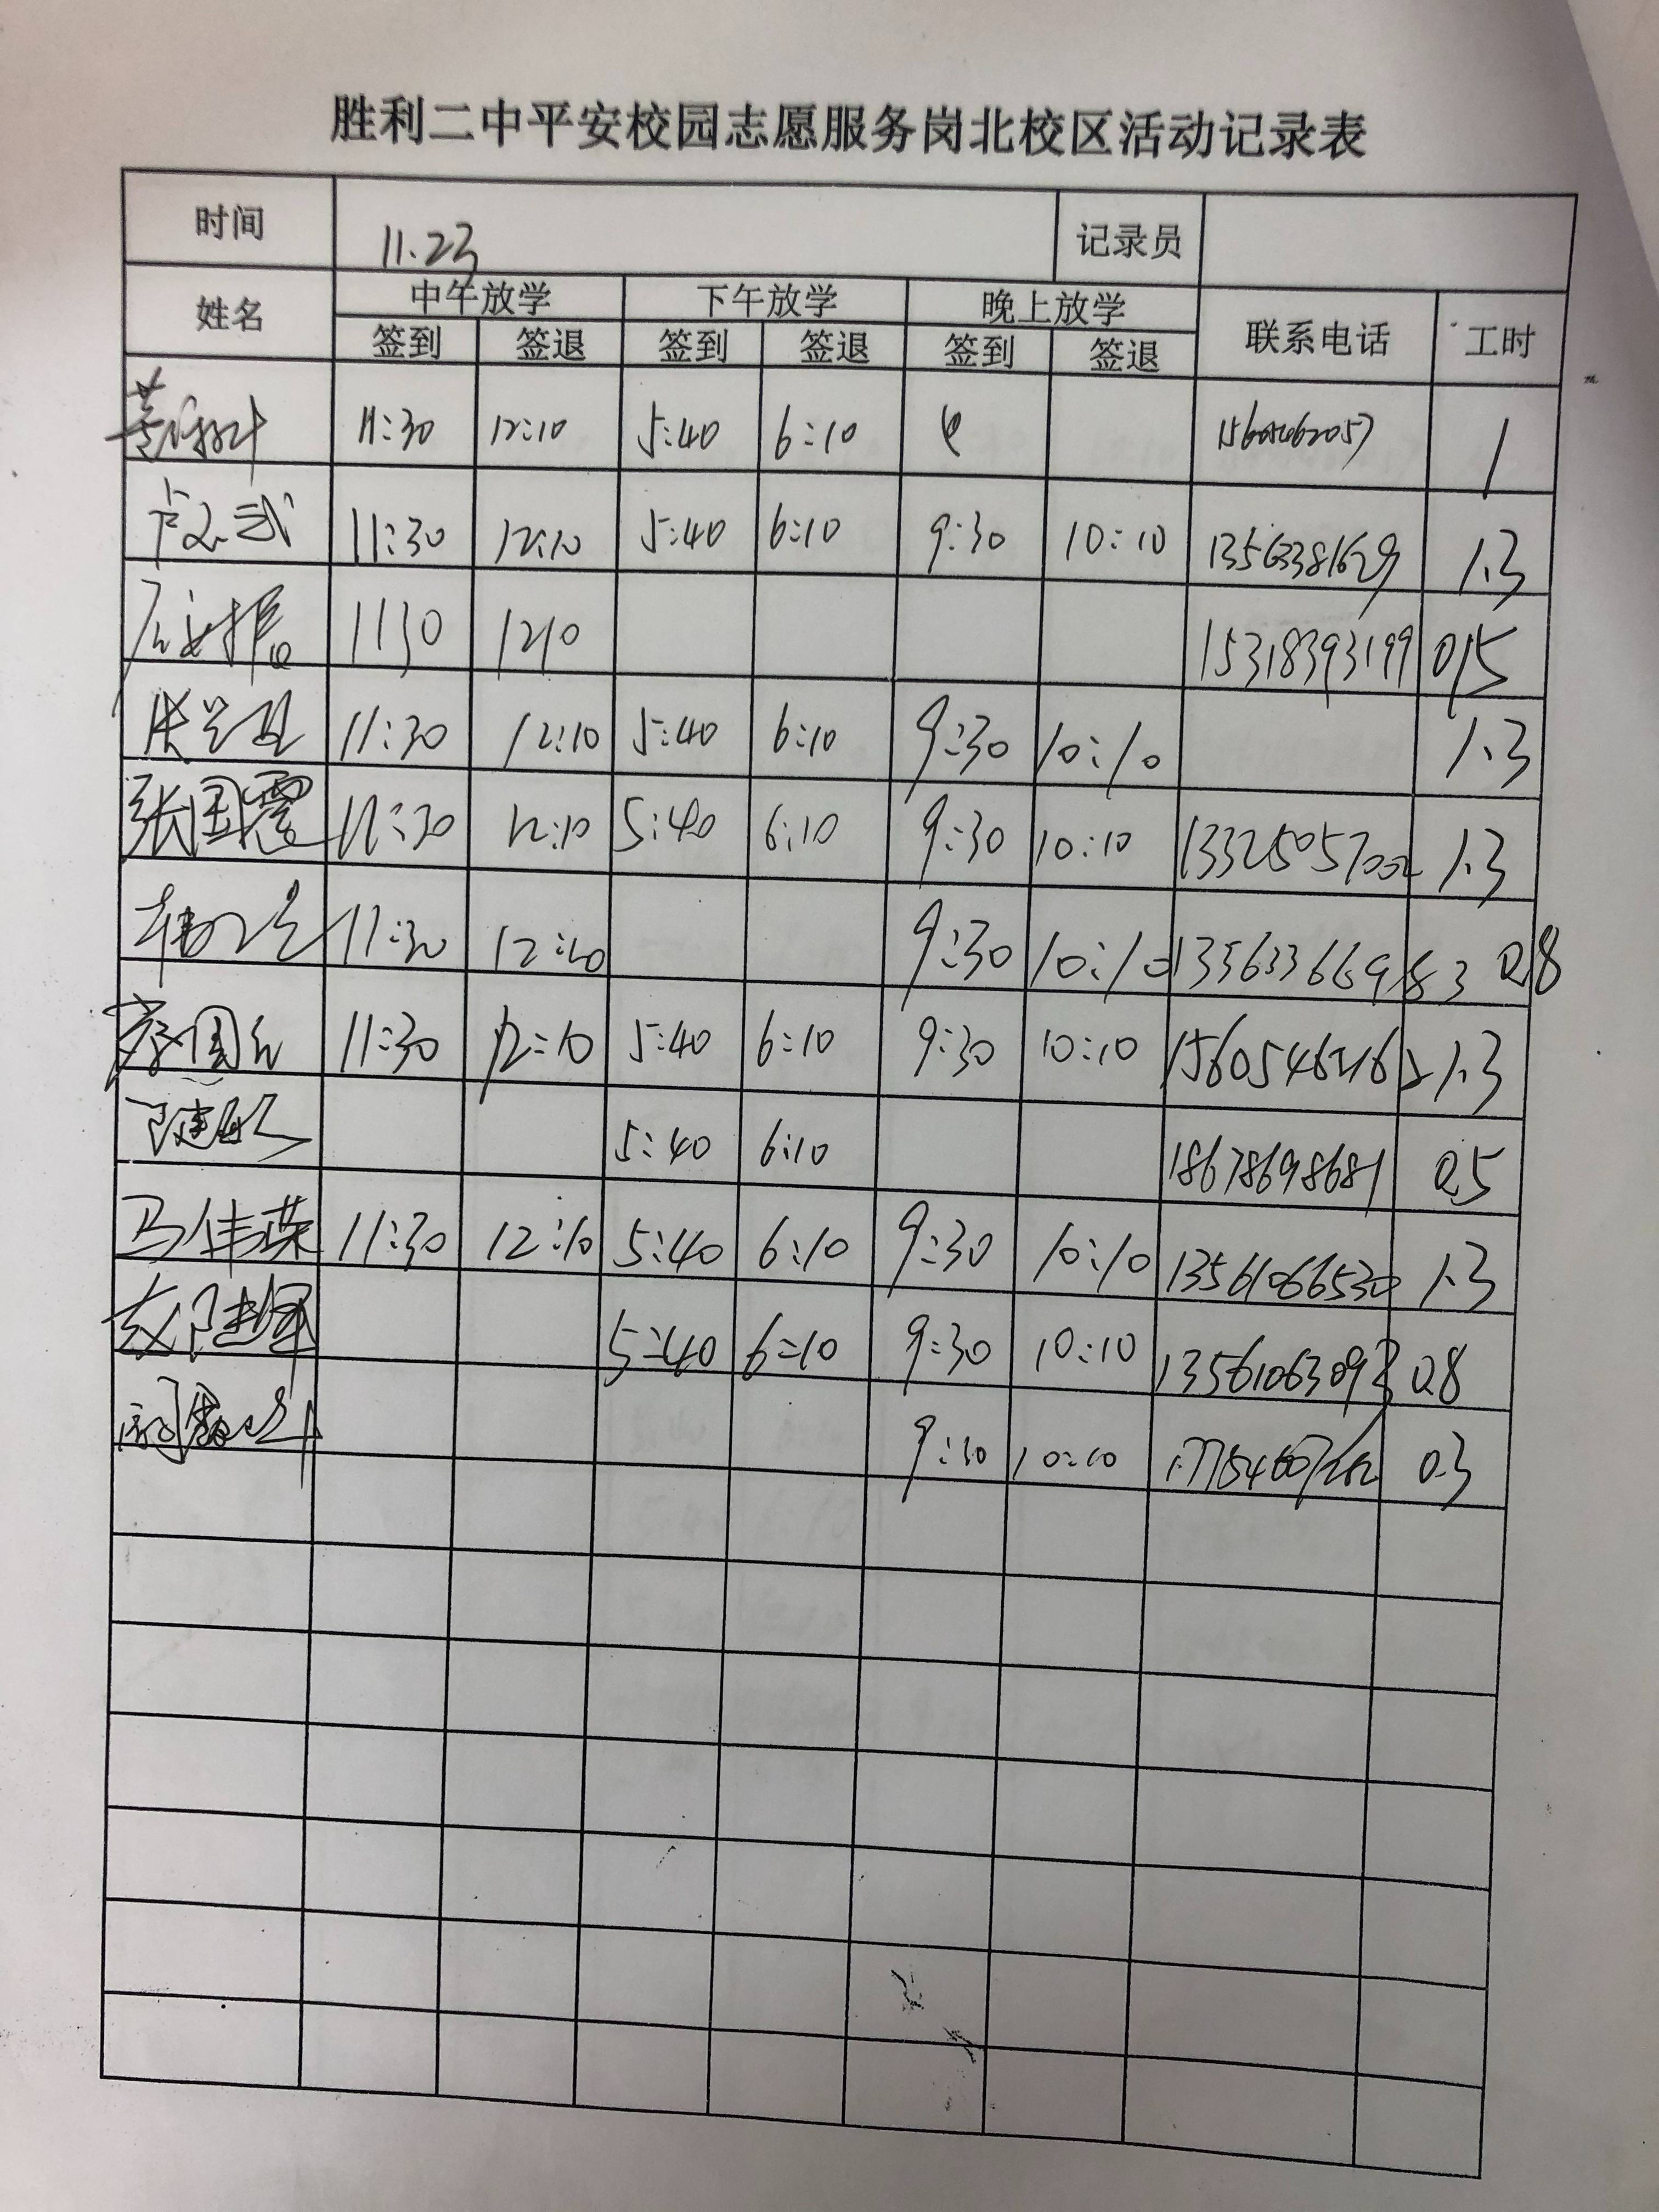 胜利二中平安校园志愿服务岗北校区活动记录表
时间 11.23 记录员
姓名 中午放学 下午放学 晚上放学 联系电话 工时
签到 签退 签到 签退 签到 签退
11:30 12:10 5:40 6:10 1
11:30 12:10 5:40 6:10 9:30 10:10 13563381629 1.3
1130 1210 15318393199
11:30 12:10 5:40 6:10 9:30 10:10 1.3
张国震 11:30 12:10 5:40 6:10 9:30 10:10 13325057002 1.3
11:30 12:10 9:30 10:10 13563366983 0.8
11:30 12:10 5:40 6:10 9:30 10:10 15605462162 1.3
5:40 6:10 18678698681 0.5
马伟荣 11:30 12:10 5:40 6:10 9:30 10:10 13561066530 1.3
5:40 6:10 9:30 10:10 13561063093 0.8
9:30 10:10 0.3